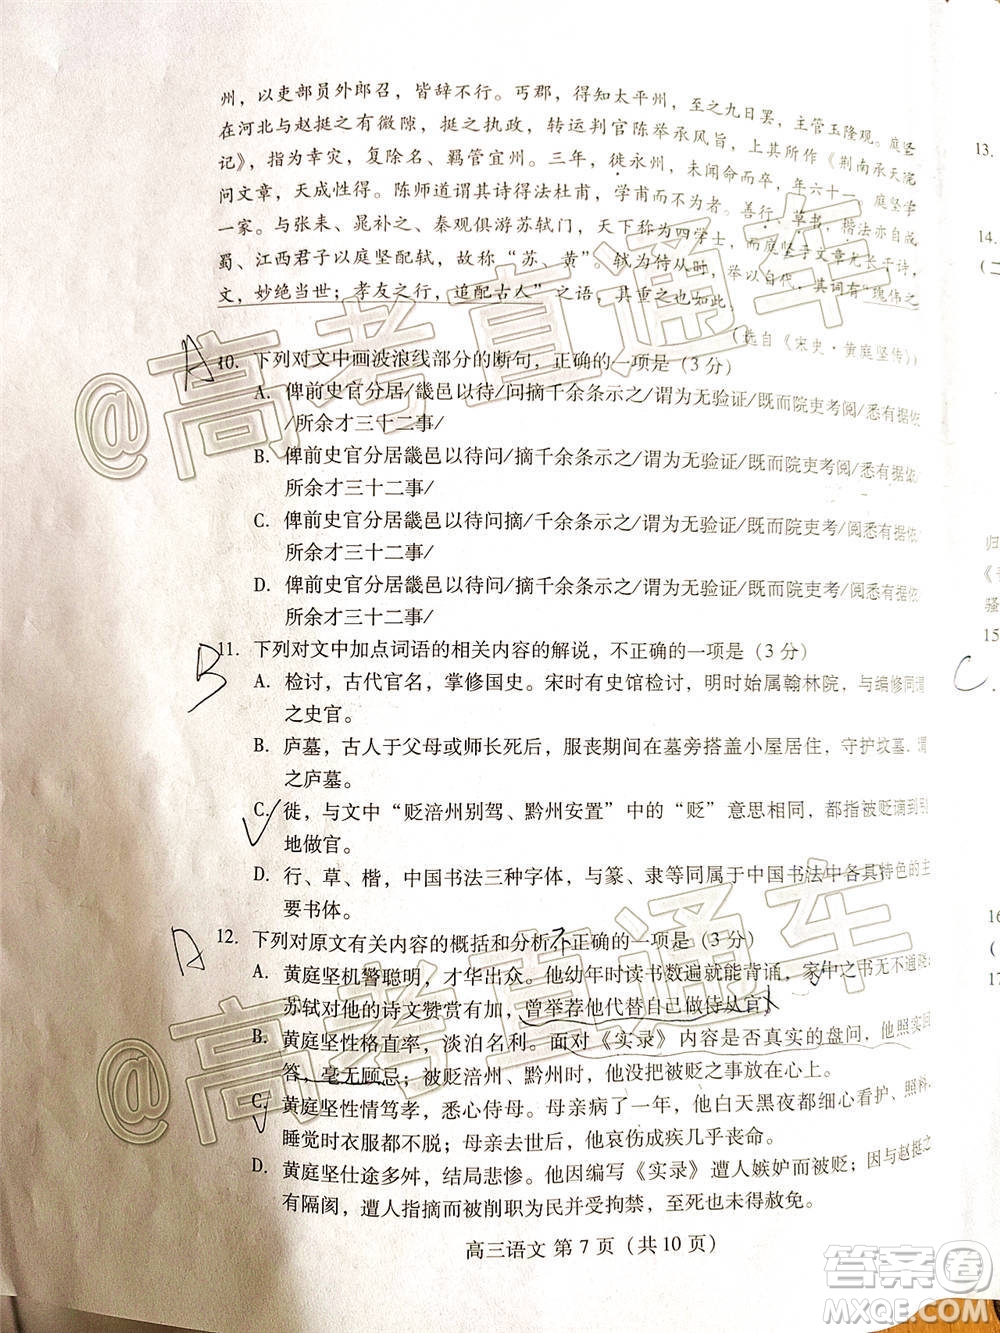 州，以吏部员外郎召，皆辞不行。丐郡，得知太平州，至之九日罢，主管玉隆观。庭坚
在河北与赵挺之有微隙，挺之执政，转运判官陈举承风旨，上其所作《荆南承天院
记》，指为幸灾，复除名、羁管宜州。三年，徙永州，未闻命而卒，年六十一。庭坚学
问文章，天成性得。陈师道谓其诗得法杜甫，学甫而不为者。善行、草书，楷法亦自成
一家。与张耒、晁补之、秦观俱游苏轼门，天下称为四学士，而庭坚于文章尤长于诗，
蜀、江西君子以庭坚配轼，故称“苏、黄”。轼为侍从时，举以自代，其词有“瑰伟之
文，妙绝当世；孝友之行，追配古人”之语，其重之也如此。
（选自《宋史·黄庭坚传》）
A 10. 下列对文中画波浪线部分的断句，正确的一项是（3 分）
A. 俾前史官分居/畿邑以待/问摘千余条示之/谓为无验证/既而院吏考阅/悉有据依
/所余才三十二事/
B. 俾前史官分居畿邑以待问/摘千余条示之/谓为无验证/既而院吏考阅/悉有据依/
所余才三十二事/
C. 俾前史官分居/畿邑以待问摘/千余条示之/谓为无验证/既而院吏考/阅悉有据依/
所余才三十二事/
D. 俾前史官分居畿邑以/待问/摘千余条示之/谓为无验证/既而院吏考/阅悉有据依/
所余才三十二事/
B 11. 下列对文中加点词语的相关内容的解说，不正确的一项是（3 分）
A. 检讨，古代官名，掌修国史。宋时有史馆检讨，明时始属翰林院，与编修同谓
之史官。
B. 庐墓，古人于父母或师长死后，服丧期间在墓旁搭盖小屋居住，守护坟墓，谓
之庐墓。
C. 徙，与文中“贬涪州别驾、黔州安置”中的“贬”意思相同，都指被贬谪到异
地做官。
D. 行、草、楷，中国书法三种字体，与篆、隶等同为中国书法中各具特色的主
要书体。
A 12. 下列对原文有关内容的概括和分析不正确的一项是（3 分）
A. 黄庭坚机警聪明，才华出众。他幼年时读书数遍就能背诵，家中之书无不通晓；
苏轼对他的诗文赞赏有加，曾举荐他代替自己做侍从官。
B. 黄庭坚性格直率，淡泊名利。面对《实录》内容是否真实的盘问，他照实回
答，毫无顾忌；被贬涪州、黔州时，他没把被贬之事放在心上。
C. 黄庭坚性情笃孝，悉心侍母。母亲病了一年，他白天黑夜都细心看护、照料，
睡觉时衣服都不脱；母亲去世后，他哀伤成疾几乎丧命。
D. 黄庭坚仕途多舛，结局悲惨。他因编写《实录》遭人嫉妒而被贬；因与赵挺之
有隔阂，遭人指摘而被削职为民并受拘禁，至死也未得赦免。
高三语文 第 7 页（共 10 页）
13.
14.
（二
归
《
骚
15
C
16
（
17
@高考直通车
@高考直通车
答案卷
MXQE.COM